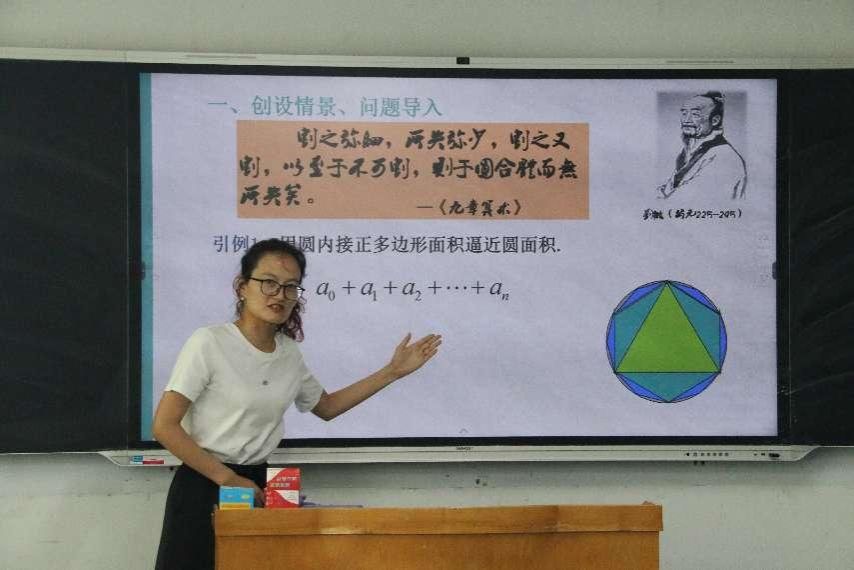 一、创设情景、问题导入
割之弥细，所失弥少，割之又
割，以至于不可割，则于圆合体而无
所失矣。
—《九章算术》
刘徽（约公元225—295）
引例1：用圆内接正多边形面积逼近圆面积.
a₀+a₁+a₂+⋯+aₙ